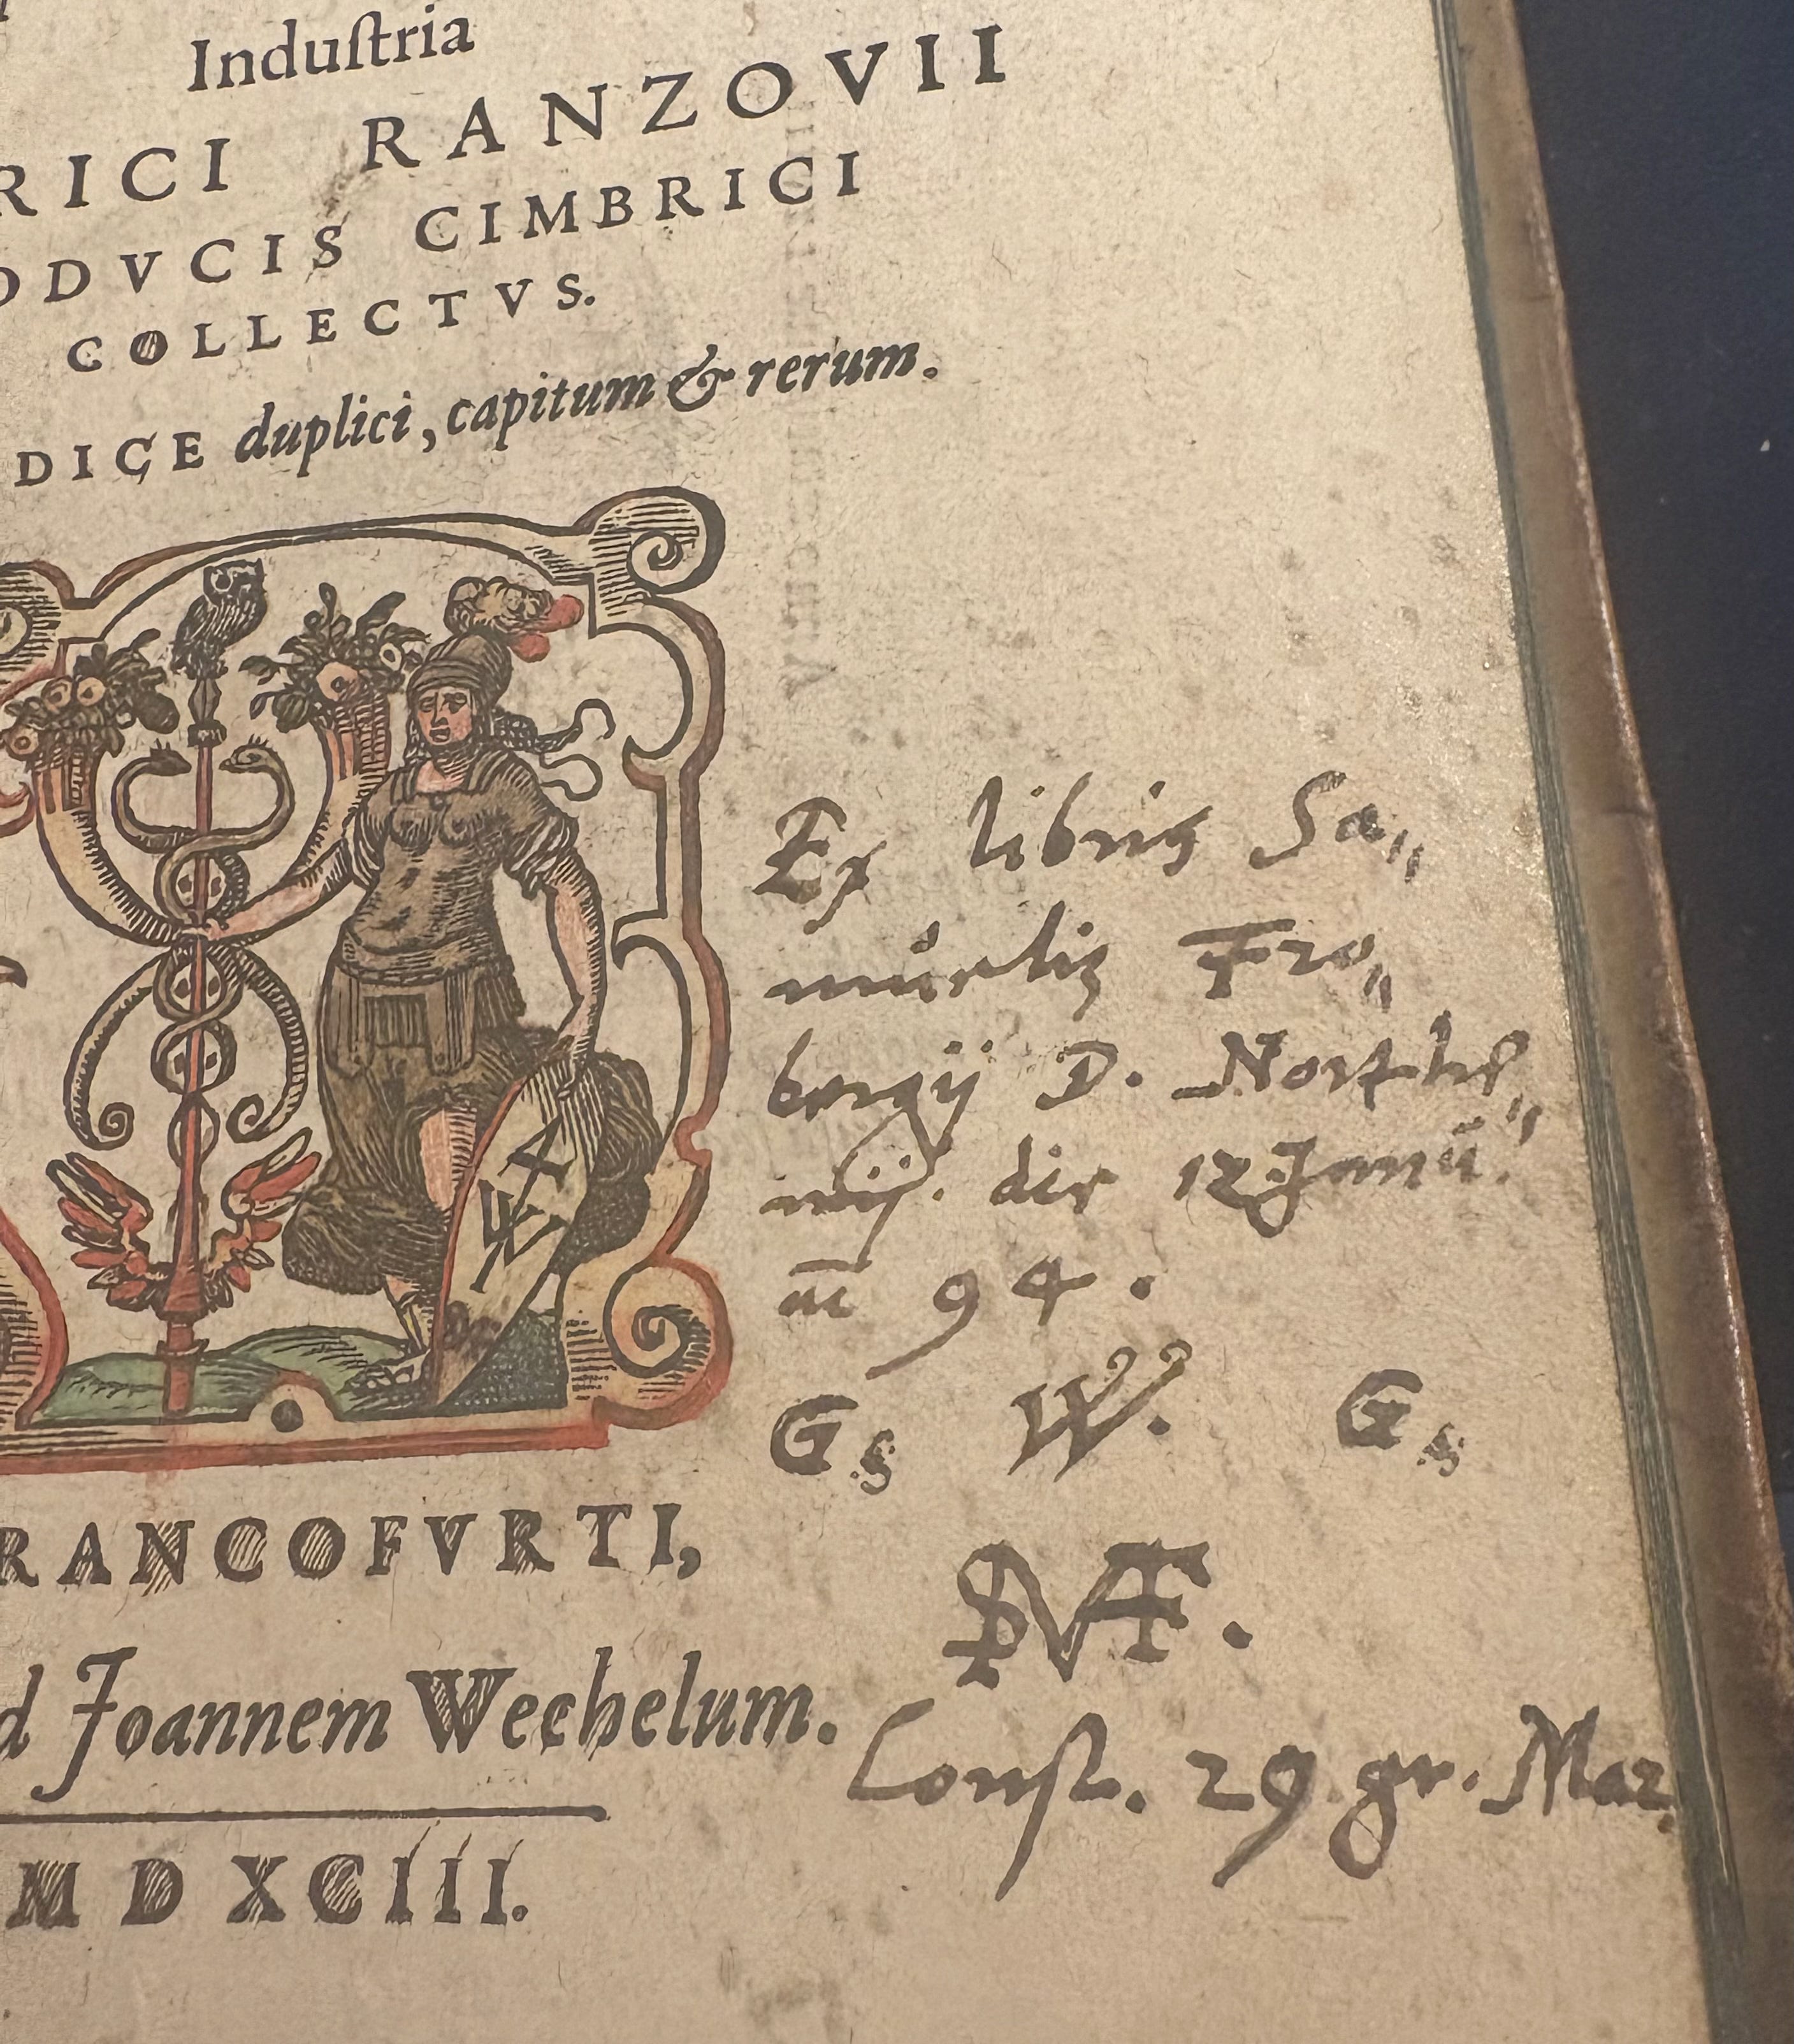 Induſtria
RICI RANZOVII
ODVCIS CIMBRICI
COLLECTVS.
DICE duplici, capitum & rerum.
Ex libris Sa„
muelis Fro„
bergij D. North„
mij. die 12 Janu.
94.
G. W. G.
RANCOFVRTI,
d Joannem Wechelum.
Conſt. 29 gr. Mar
M D XCIII.